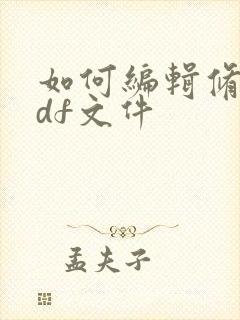 如何编辑脩
df文件
孟夫子